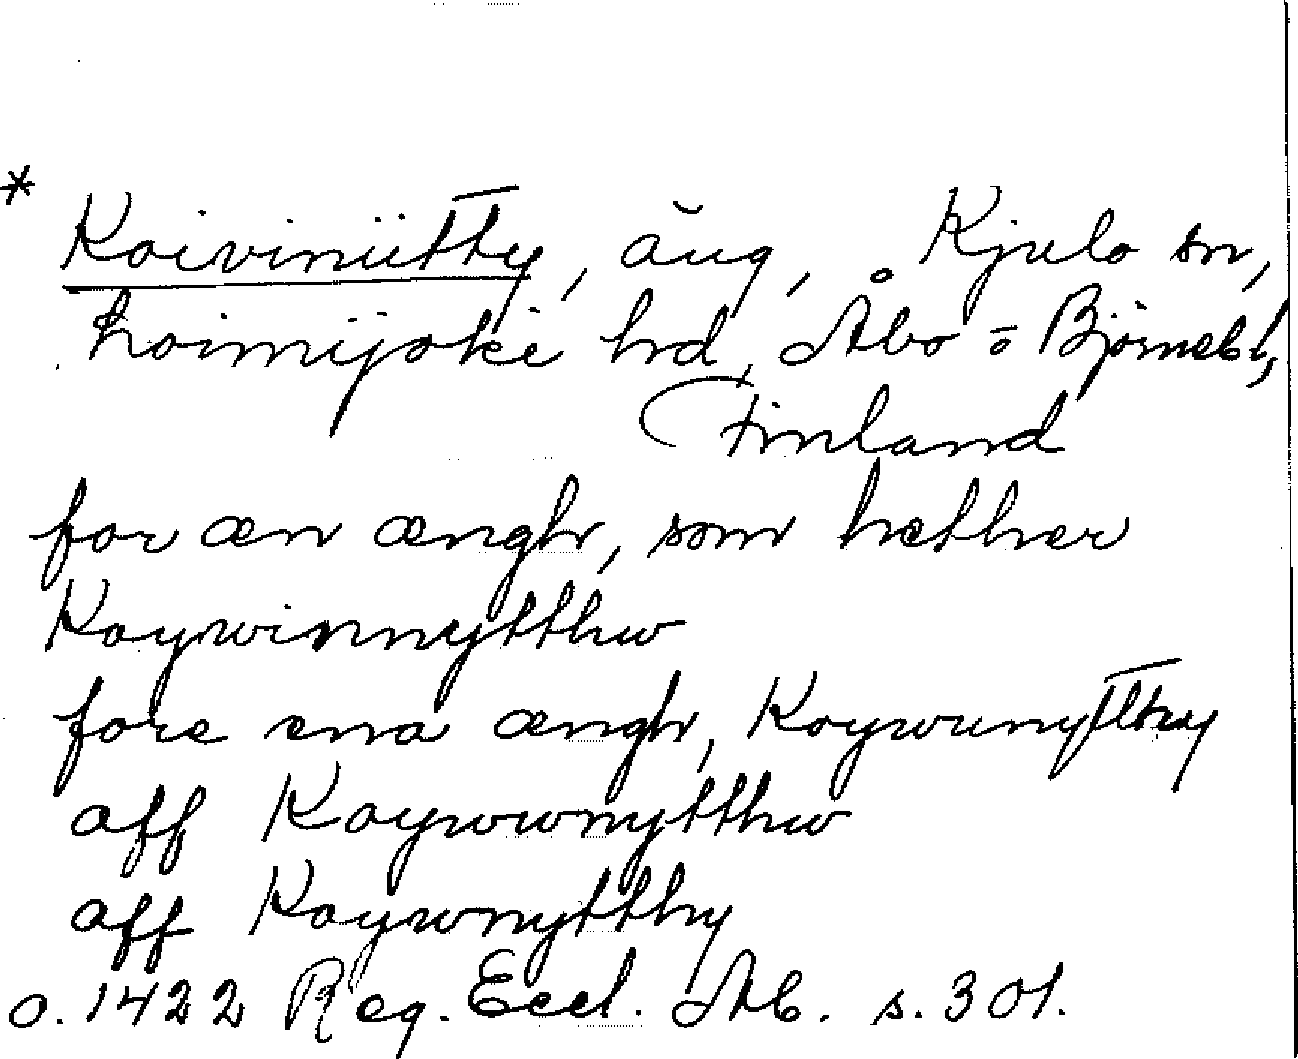 * Koiviniitty, äng, Kjulo sn,
Loimijoki hd, Åbo o Björneb. l,
Finland
for æn ængh, som hether
Koywinnytthw
fore ena ængh, Koywunytthy
aff Koywwnytthw
aff Koywnytthy
o. 1422 Reg. Eccl. Ab. s. 301.